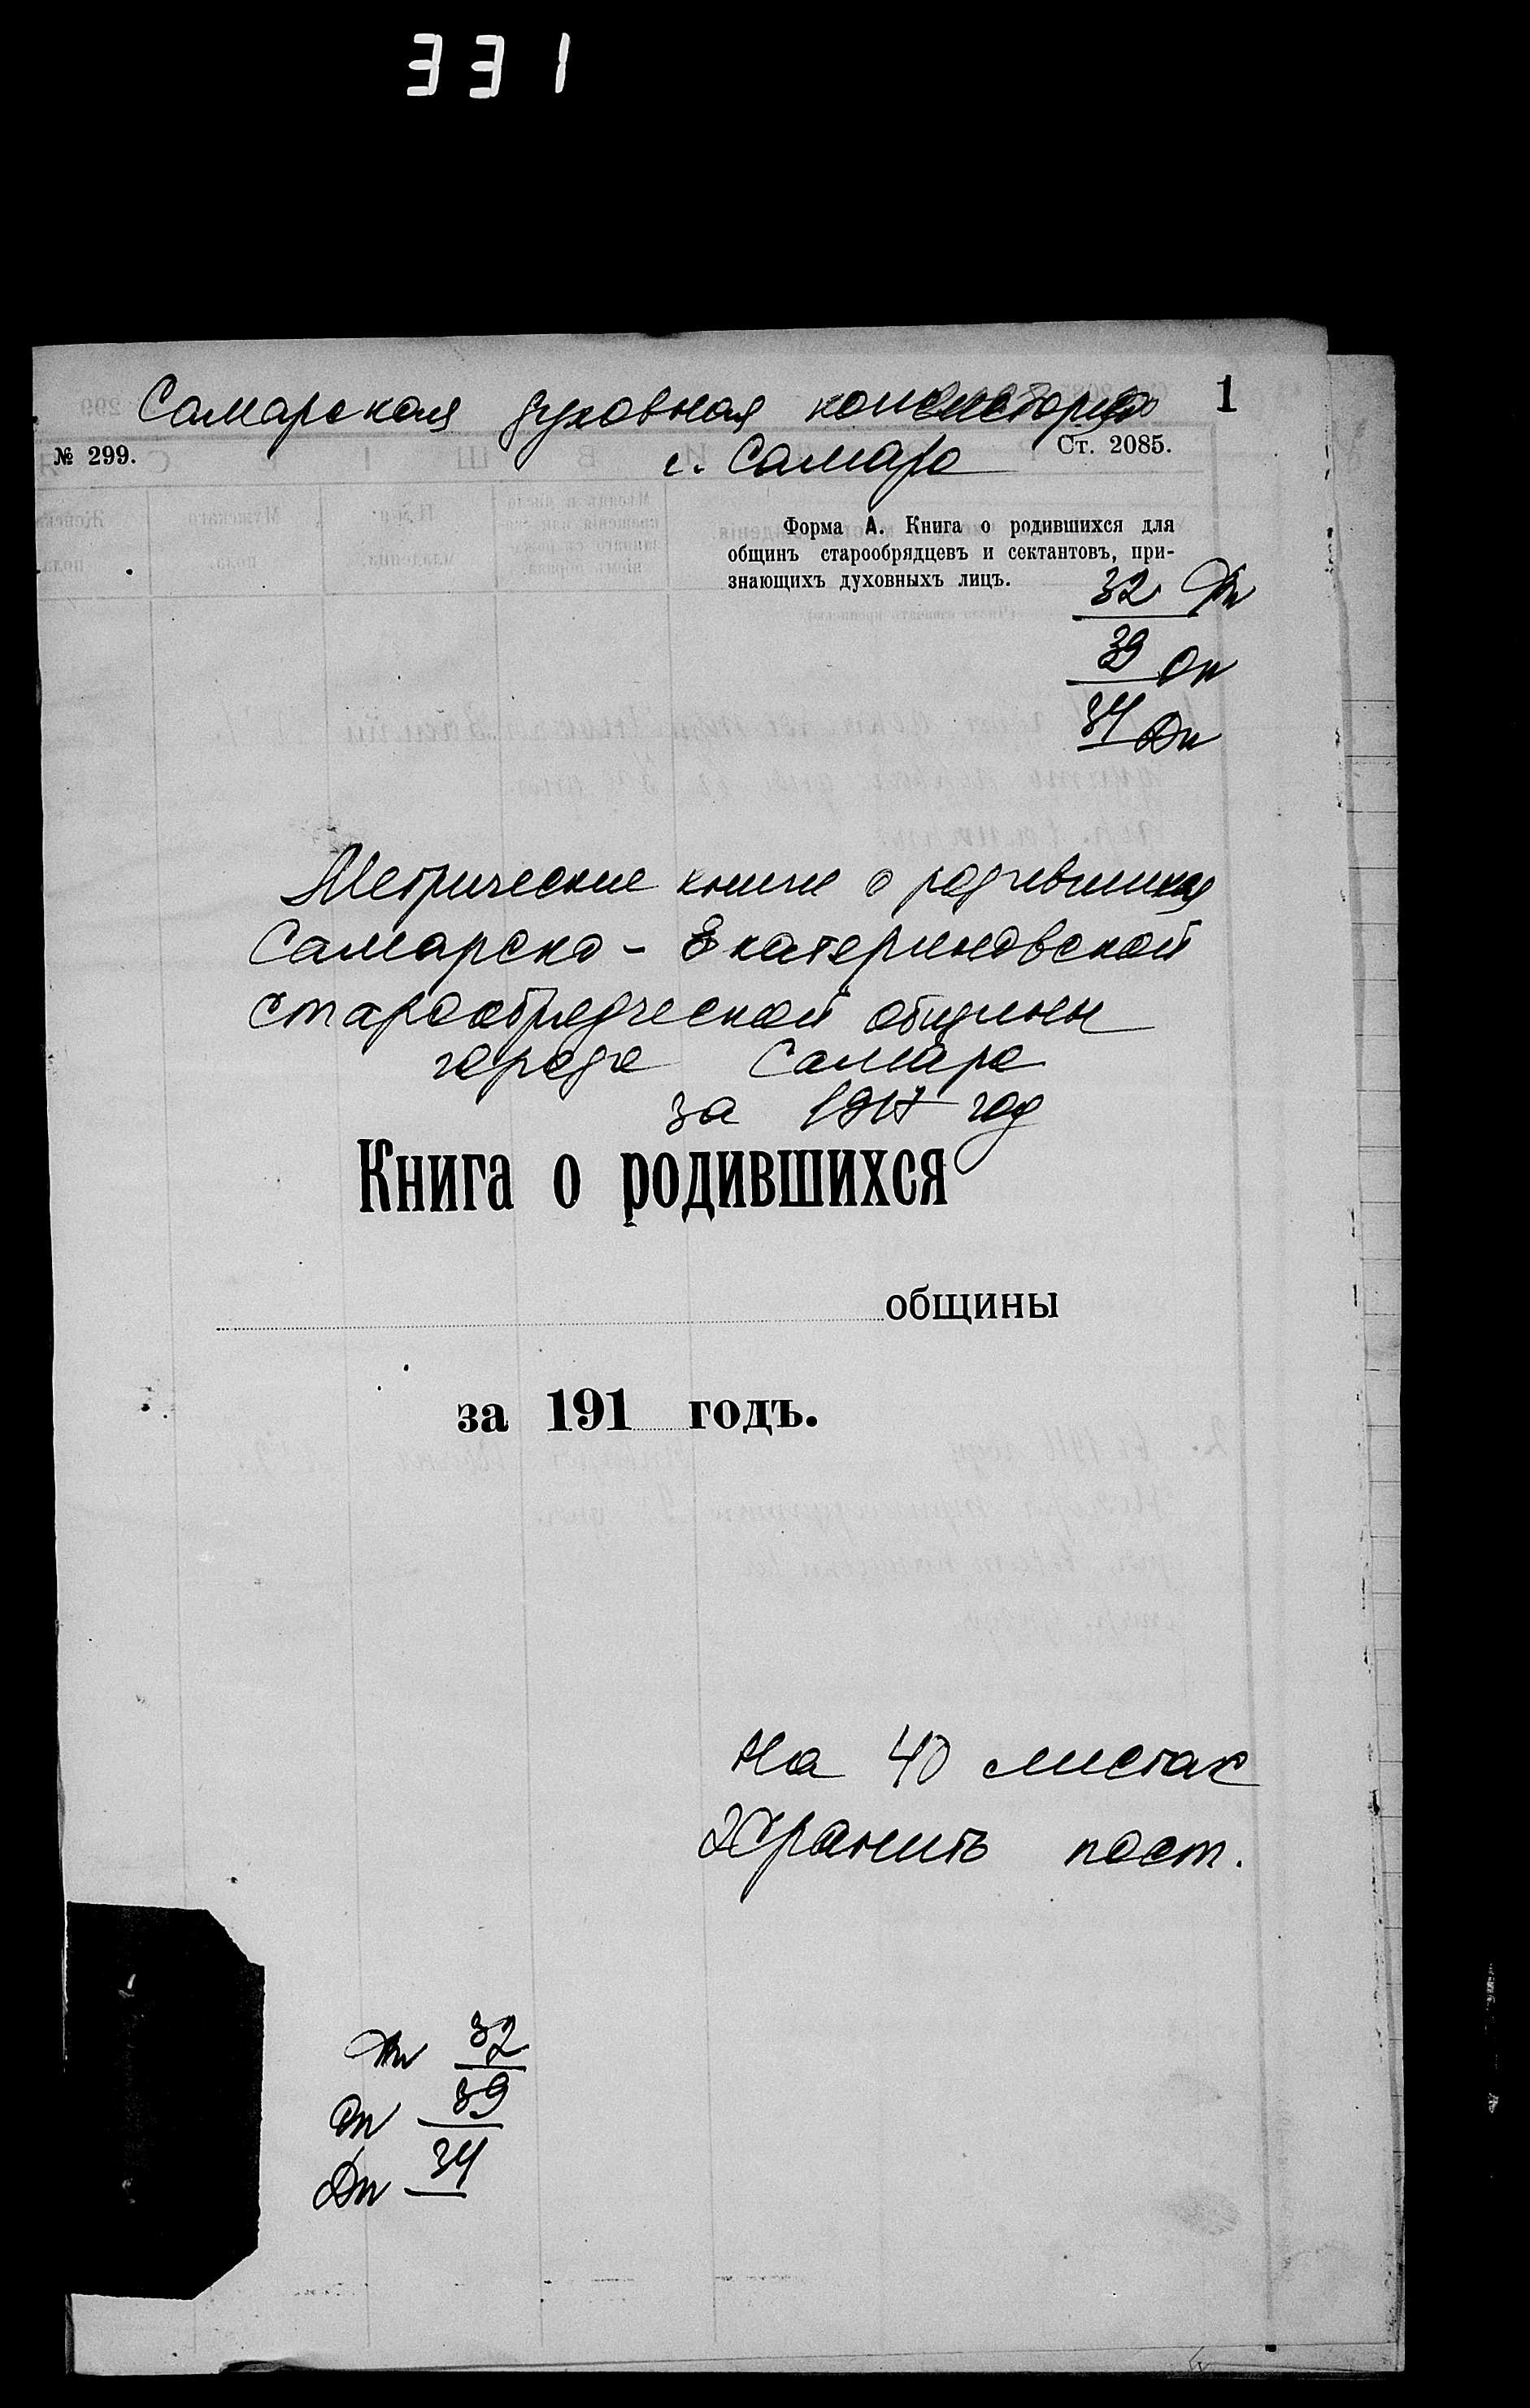 331
1
Самарская духовная консистория
№ 299.
г. Самара
Ст. 2085.
Форма А. Книга о родившихся для
общинъ старообрядцевъ и сектантовъ, при-
знающихъ духовныхъ лицъ.
32
39 Оп
34 Дп
Метрические книги о родившихся
Самарско-Екатериновской
старообрядческой общины
города Самара
за 1917 год
Книга о родившихся
общины
за 191 годъ.
На 40 листах
Хранить пост.
32
Оп 39
Дп 34